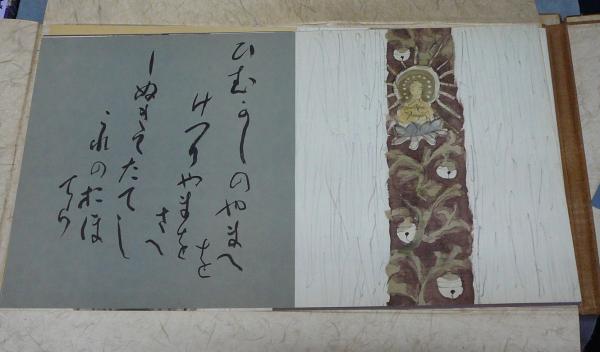 ひむかしのやまへ
を
けつりやまを
さへ
しぬきてたてし
これのおほ
てら